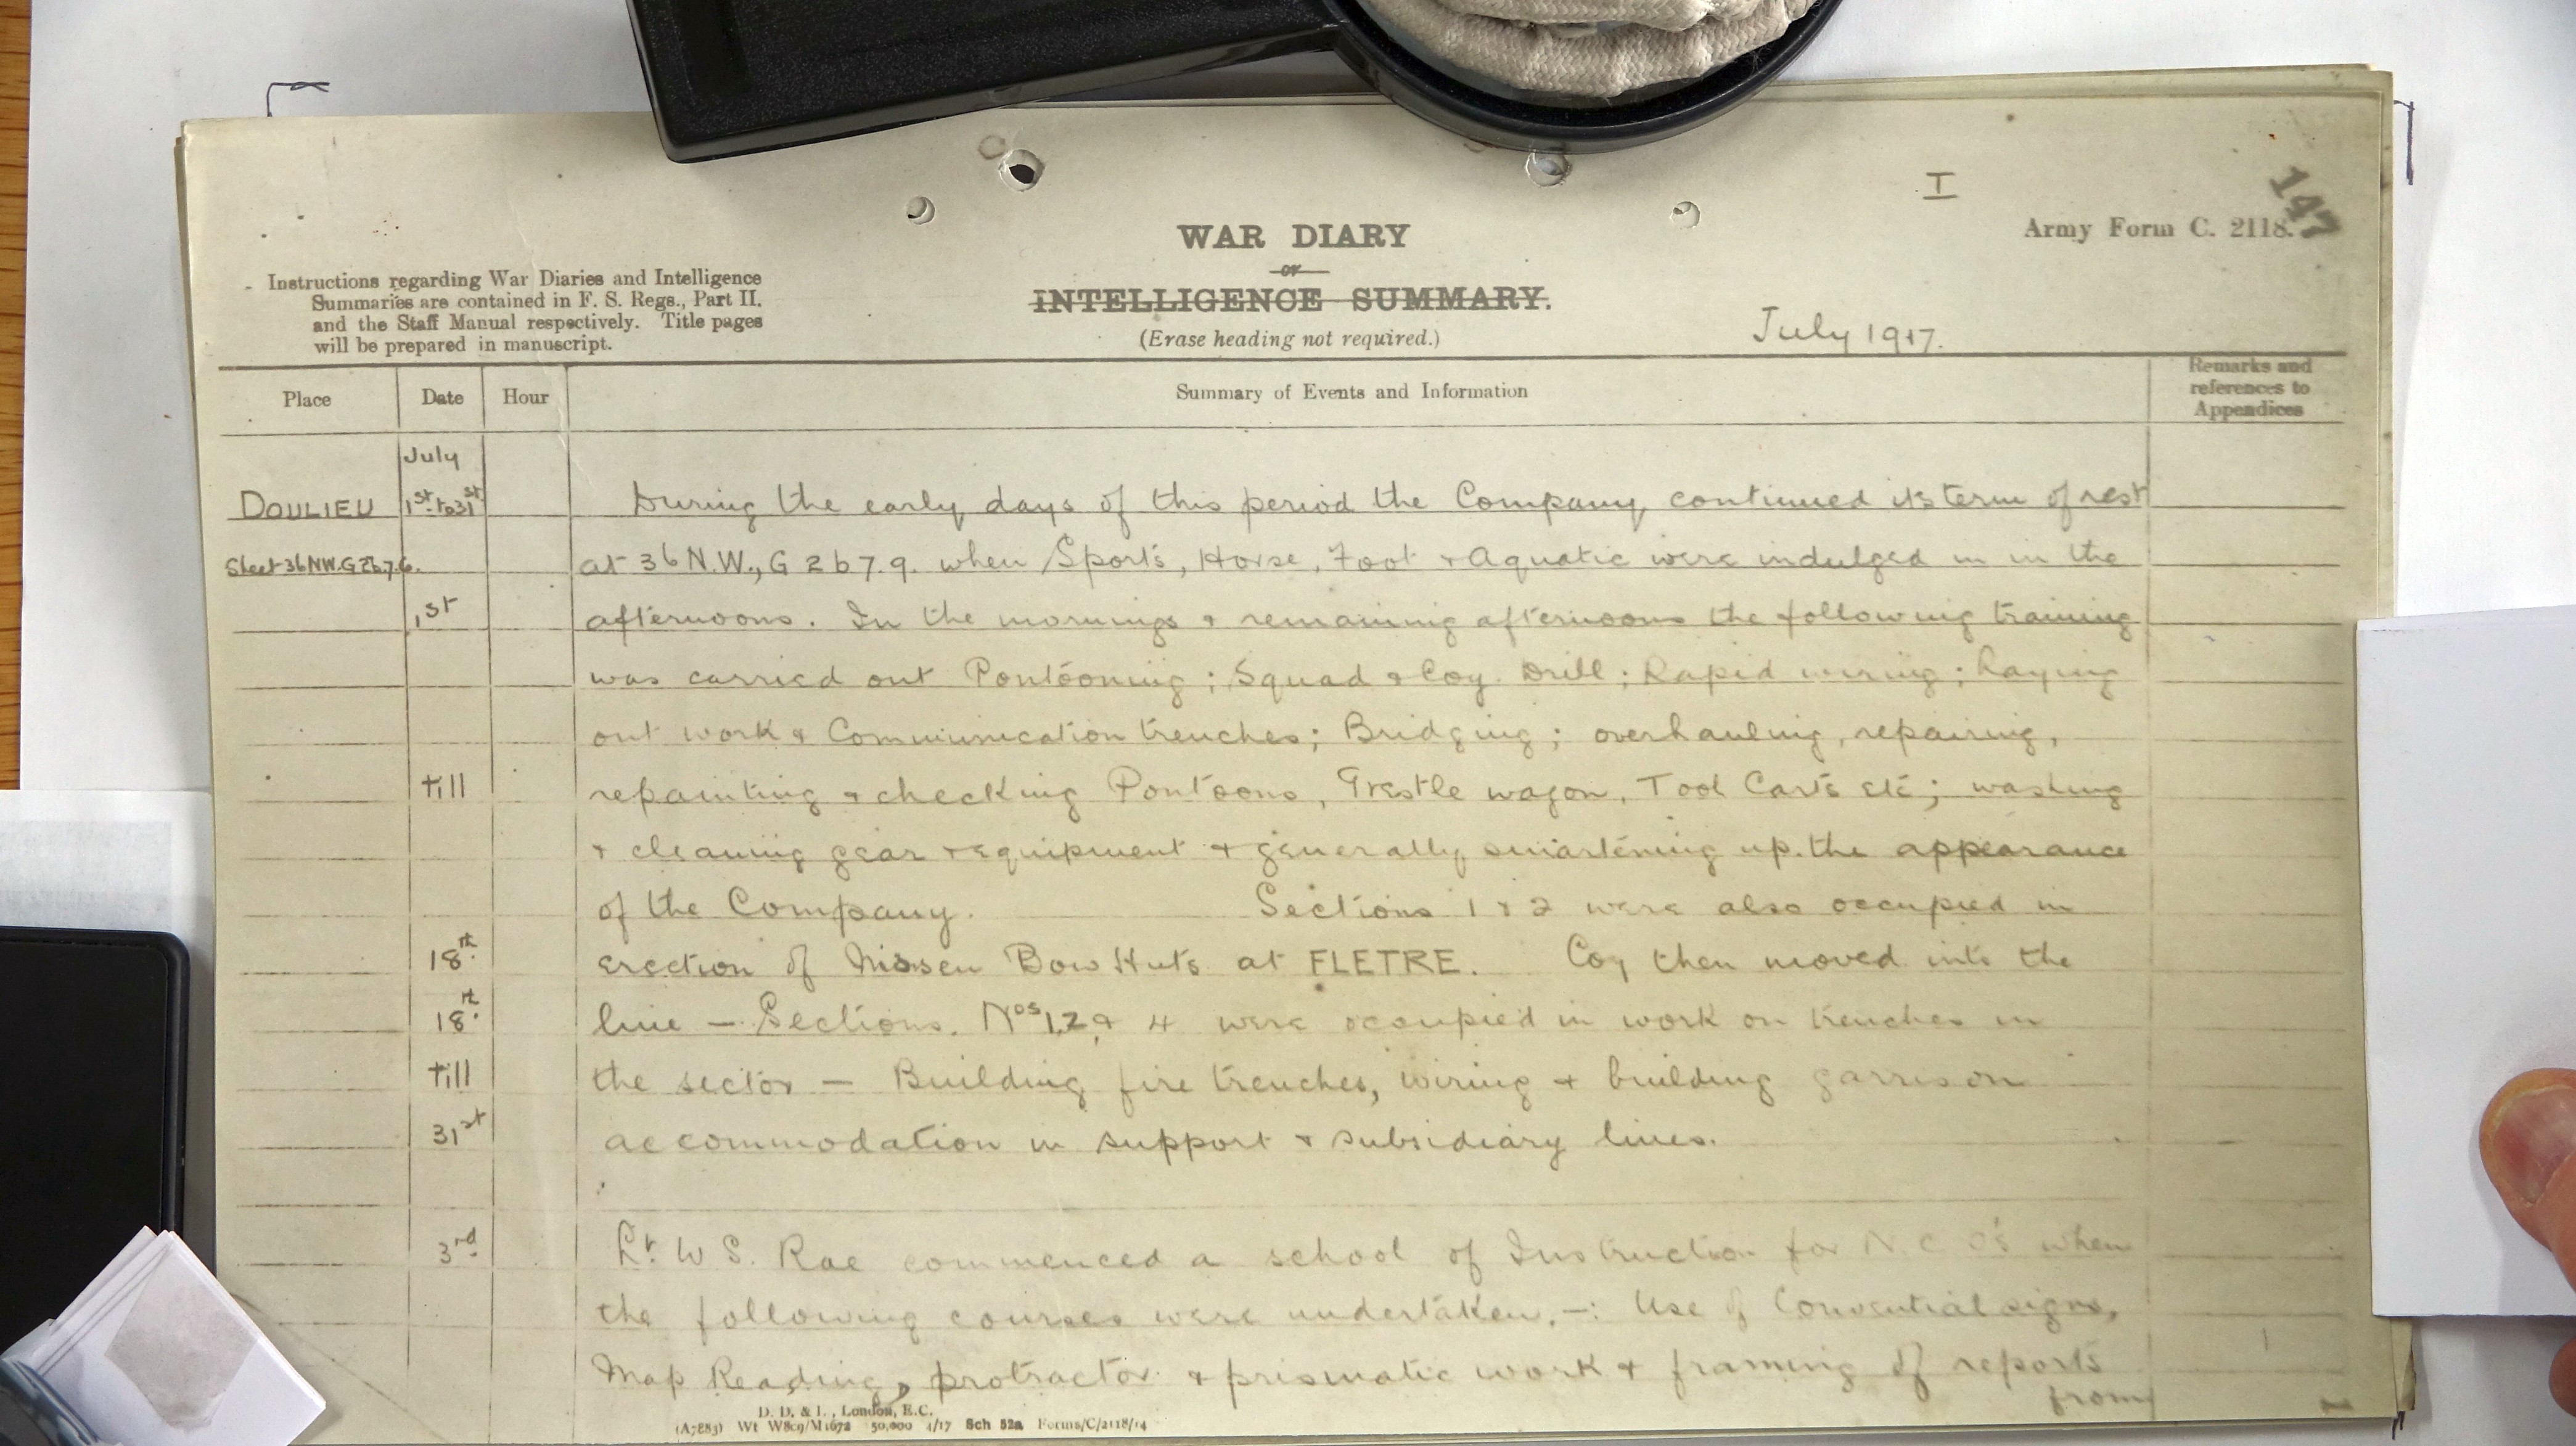 I
147
Army Form C. 2118.
WAR DIARY
or
INTELLIGENCE SUMMARY.
(Erase heading not required.)
Instructions regarding War Diaries and Intelligence
Summaries are contained in F. S. Regs., Part II.
and the Staff Manual respectively. Title pages
will be prepared in manuscript.
July 1917.
Place Date Hour Summary of Events and Information Remarks and references to Appendices
July
DOULIEU 1st to 31st During the early days of this period the Company continued its term of rest
Sheet 36NW.G2b.7.6. at 36 N.W., G 2 b 7.9. when Sports, Horse, Foot + Aquatic were indulged in in the
1st afternoons. In the mornings + remaining afternoons the following training
was carried out Pontooning; Squad & Coy. Drill; Rapid wiring; Laying
out work & Communication trenches; Bridging; overhauling, repairing,
till repainting + checking Pontoons, Trestle wagon, Tool Carts etc; washing
+ cleaning gear + equipment + generally smartening up the appearance
of the Company. Sections 1 + 2 were also occupied in
18th erection of Nissen Bow Huts at FLETRE. Coy then moved into the
18th line — Sections. Nos 1,2 & 4 were occupied in work on trenches in
till the sector — Building fire trenches, wiring + building garrison
31st accommodation in support + subsidiary lines.
3rd Lt. W S. Rae commenced a school of Instruction for N.C.O's when
the following courses were undertaken. —: Use of Convential signs,
Map Reading, protractor + prismatic work + framing of reports
from
D. D. & L., London, E.C.
(A7883) Wt W809/M1672 50,000 4/17 Sch 52a Forms/C/2118/14